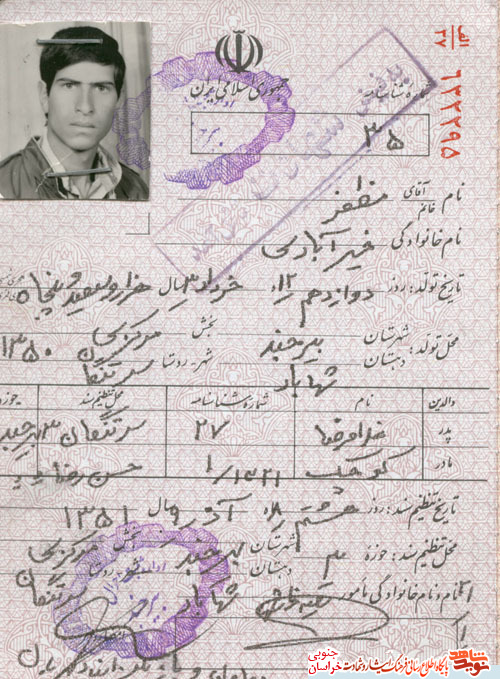 الف
۳۷
۶۲۲۲۹۵
جمهوری اسلامی ایران
شماره شناسنامه
۳۵
نام آقای خانم مظفر
نام خانوادگی خیرآبادی
تاریخ تولد: روز دوازدهم ۱۲ ماه خرداد ۳ سال هزار و سیصد و پنجاه
۱۳۵۰
محل تولد: شهرستان بیرجند بخش مرکزی
دهستان شهاباد شهر-روستا سرتنگان
والدین نام شماره شناسنامه محل تنظیم سند حوزه
پدر غلامرضا ۲۷ سرتنگان ۳ بیرجند
مادر کوچک ۱/۱۳۲۱
تاریخ تنظیم سند: روز هشتم ۸ ماه آذر ۹ سال ۱۳۵۱
محل تنظیم سند: حوزه ۳ شهرستان بیرجند بخش مرکزی
دهستان شهاباد شهر-روستا سرتنگان
نام و نام خانوادگی مامور
نوید شاهد
پایگاه اطلاع رسانی فرهنگ ایثار و شهادت خراسان جنوبی